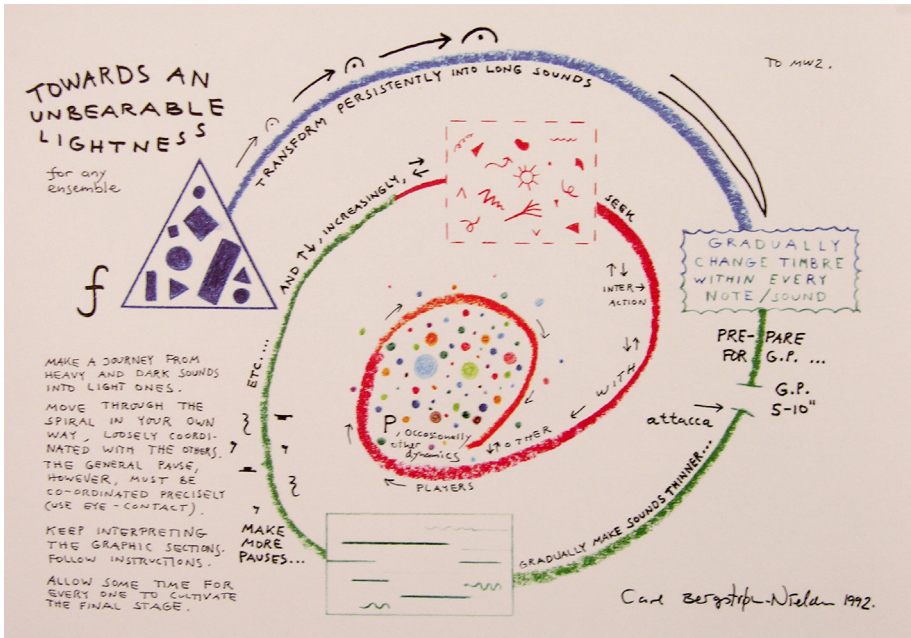 TOWARDS AN
UNBEARABLE
LIGHTNESS
for any
ensemble
TO MW2.
f
TRANSFORM PERSISTENTLY INTO LONG SOUNDS
GRADUALLY
CHANGE TIMBRE
WITHIN EVERY
NOTE/SOUND
PRE- PARE
FOR G.P. ...
G.P.
5-10"
attacca
GRADUALLY MAKE SOUNDS THINNER...
MAKE
MORE
PAUSES...
ETC....
AND ↑↓, INCREASINGLY,
SEEK
INTER
ACTION
WITH
OTHER
PLAYERS
P, OCCASIONALLY
other
dynamics
MAKE A JOURNEY FROM
HEAVY AND DARK SOUNDS
INTO LIGHT ONES.
MOVE THROUGH THE
SPIRAL IN YOUR OWN
WAY, LOOSELY COORDI-
NATED WITH THE OTHERS.
THE GENERAL PAUSE,
HOWEVER, MUST BE
CO-ORDINATED PRECISELY
(USE EYE-CONTACT).
KEEP INTERPRETING
THE GRAPHIC SECTIONS.
FOLLOW INSTRUCTIONS.
ALLOW SOME TIME FOR
EVERY ONE TO CULTIVATE
THE FINAL STAGE.
Carl Bergstrøm-Nielsen 1992.